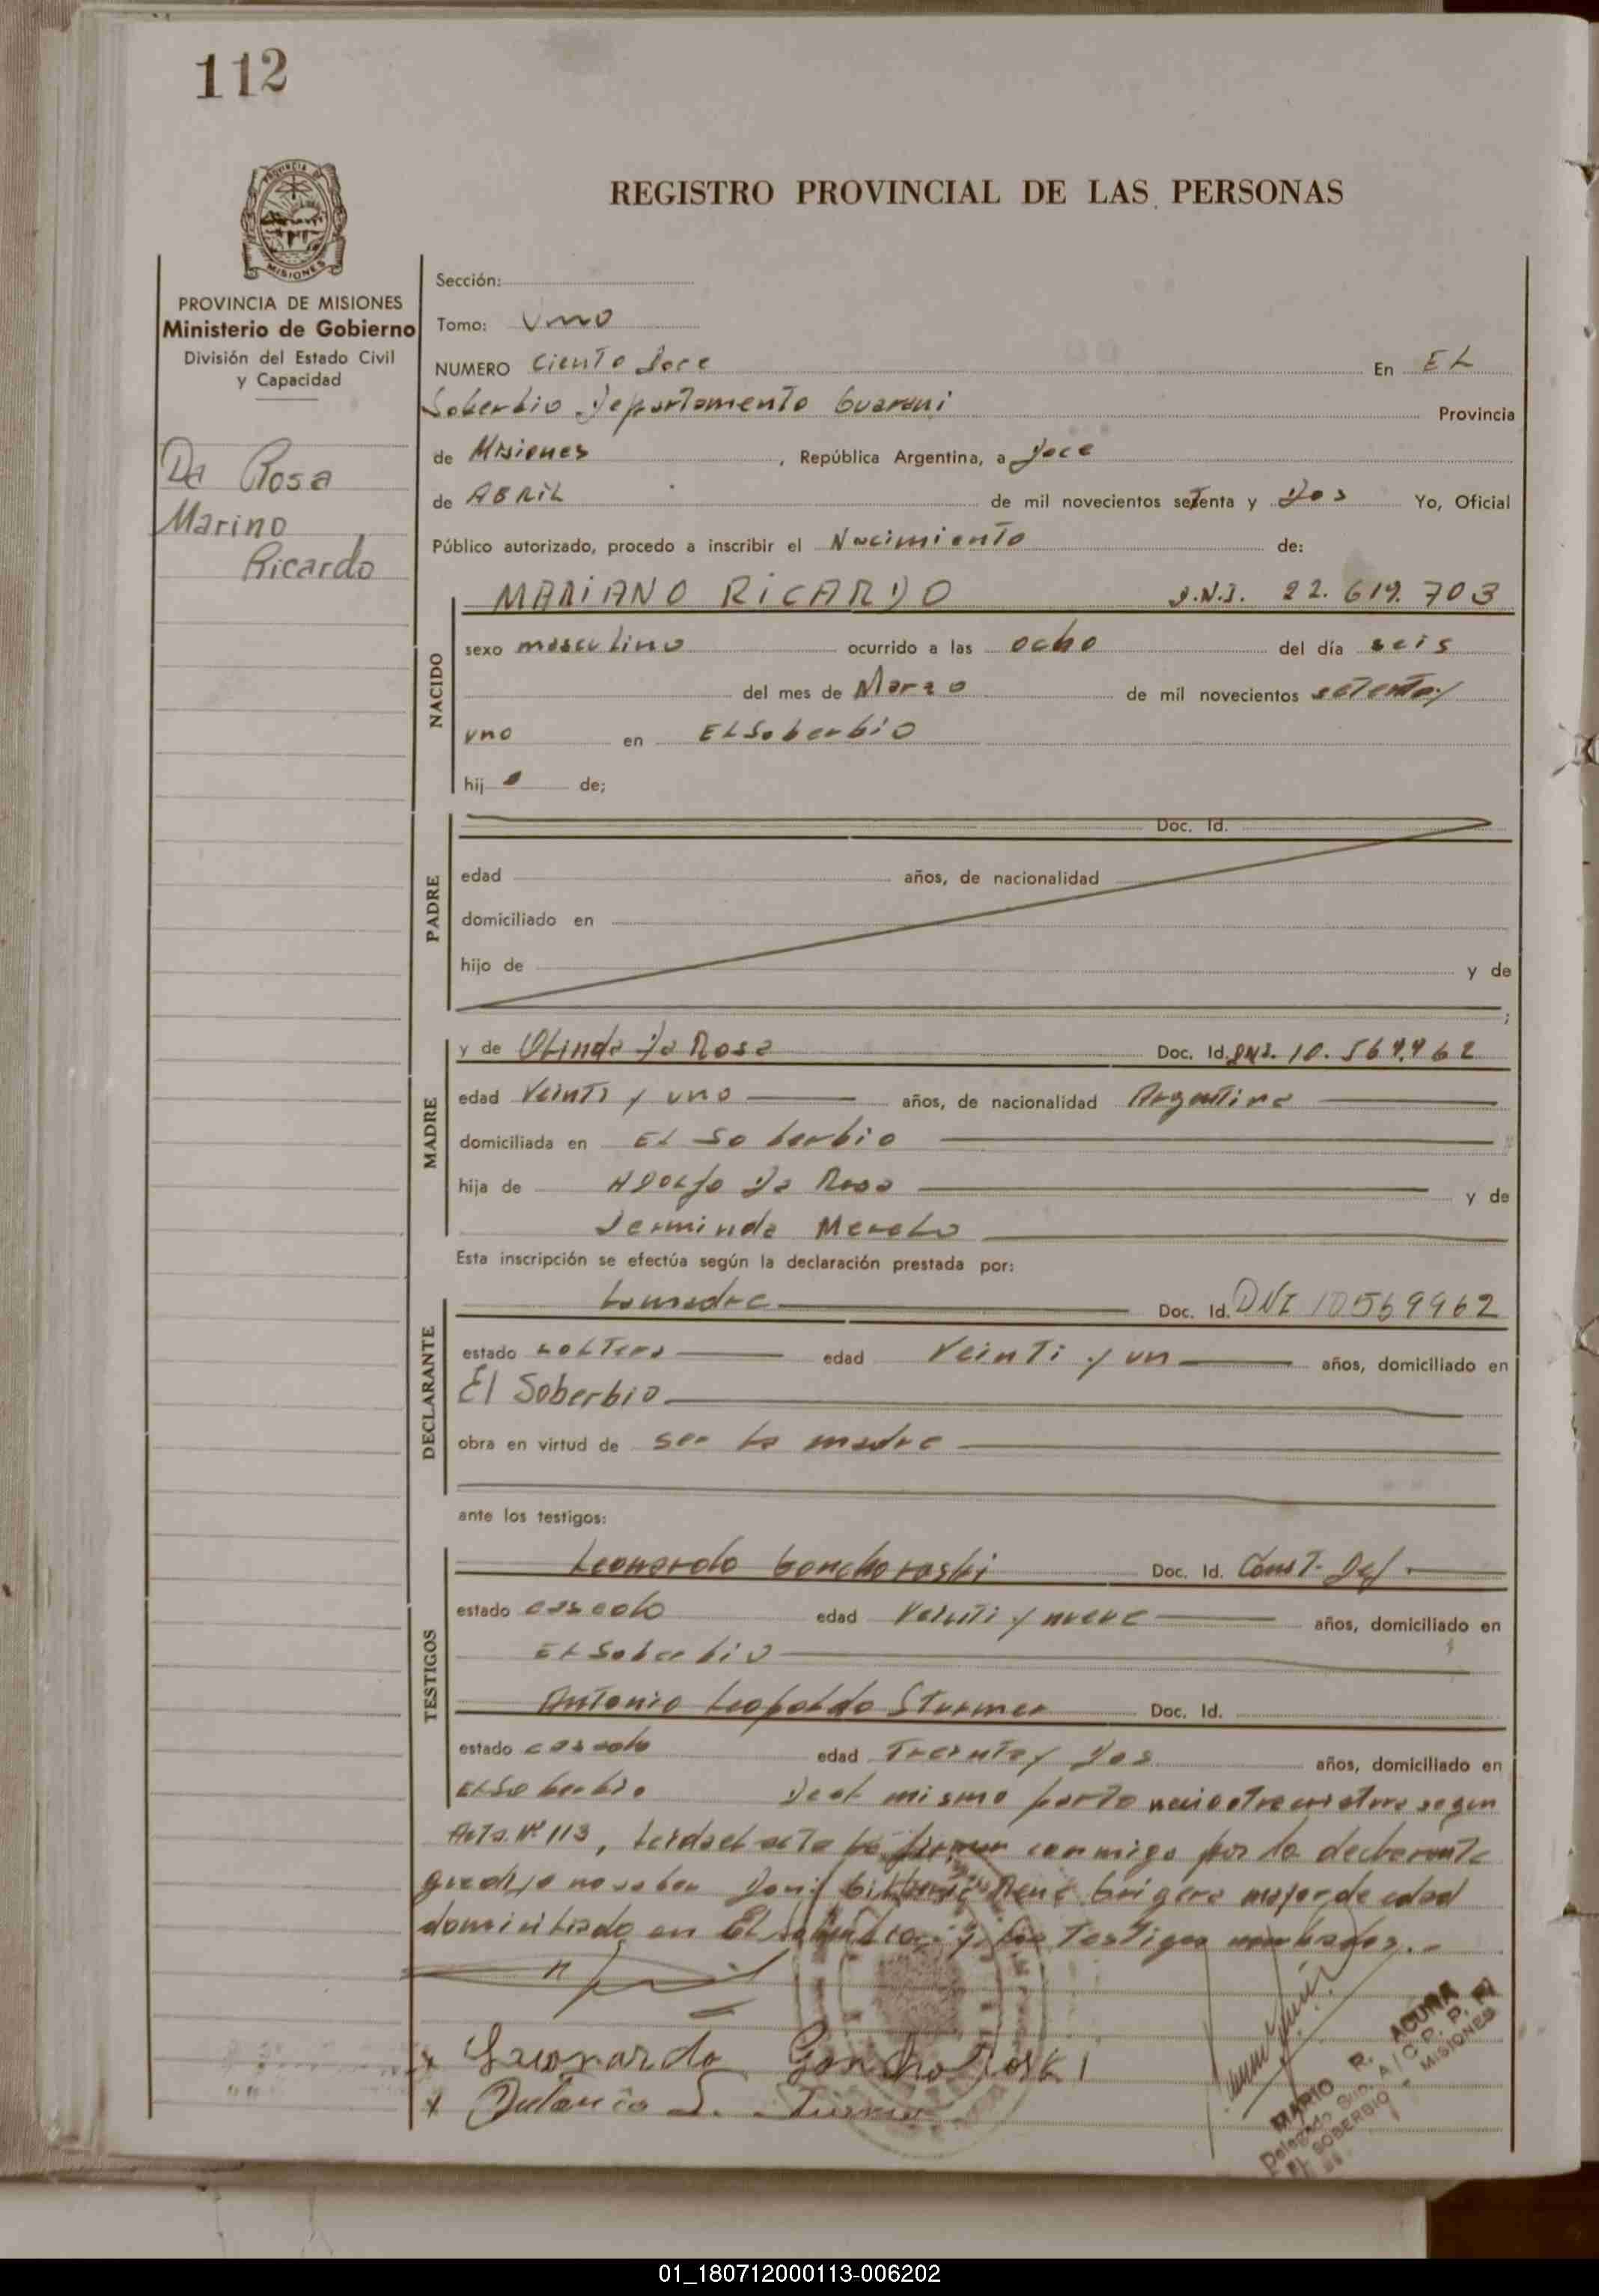 112
REGISTRO PROVINCIAL DE LAS PERSONAS
MISIONES
PROVINCIA DE MISIONES
Ministerio de Gobierno
División del Estado Civil
y Capacidad
Da Rosa
Marino
Ricardo
Sección:
Tomo: Uno
NUMERO Ciento doce En EL
Soberbio Departamento Guarani Provincia
de Misiones , República Argentina, a doce
de ABRIL de mil novecientos setenta y dos Yo, Oficial
Público autorizado, procedo a inscribir el Nacimiento de:
MARIANO RICARDO D.N.I. 22.619.703
NACIDO
sexo masculino ocurrido a las ocho del día seis
del mes de Marzo de mil novecientos setenta y
uno en El Soberbio
hij o de;
PADRE
Doc. Id.
edad años, de nacionalidad
domiciliado en
hijo de y de
;
MADRE
y de Olinda Da Rosa Doc. Id. DNI. 10.569.962
edad Veinti y uno años, de nacionalidad Argentina
domiciliada en El Soberbio
hija de Adolfo Da Rosa y de
Derminda Merelo
Esta inscripción se efectúa según la declaración prestada por:
DECLARANTE
La madre Doc. Id. DNI 10569962
estado soltera edad Veinti y un años, domiciliado en
El Soberbio
obra en virtud de ser la madre
ante los testigos:
TESTIGOS
Leonardo Gonchoroski Doc. Id. Const. Def
estado casado edad Veinti y nueve años, domiciliado en
El Soberbio
Antonio Leopoldo Sturmer Doc. Id.
estado casado edad Treinta y dos años, domiciliado en
El Soberbio Del mismo parto según
Acta Nº 113, Leida el acta la firman conmigo por la declarante
que dijo no saber mayor de edad
domiciliado en El Soberbio y los Testigos nombrados.-
Leonardo Gonchoroski
Antonio L. Sturmer
MARIO R. ACUÑA
Delegado A/C R. P. P.
EL SOBERBIO - MISIONES
01_180712000113-006202